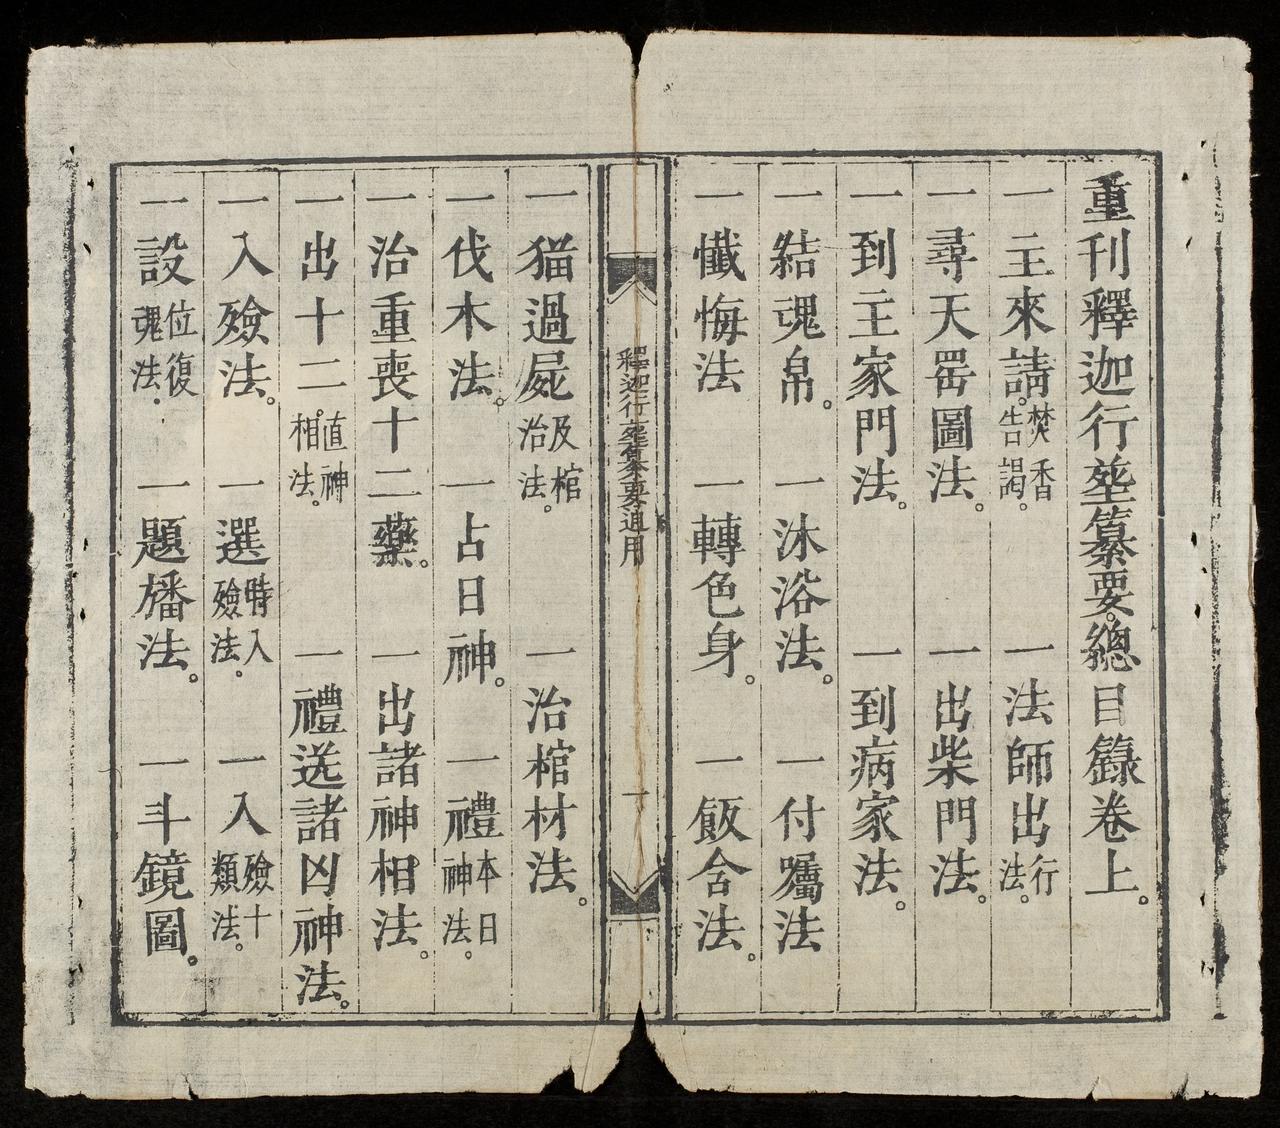 重刊釋迦行塟纂要。總目錄卷上。
一主來請。焚香告謁。 一法師出行法。
一尋天罡圖法。 一出柴門法。
一到主家門法。 一到病家法。
一結魂帛。 一沐浴法。 一付囑法
一懺悔法 一轉色身。 一飯含法。
釋迦行塟纂要通用 一
一猫過屍及棺治法。 一治棺材法。
一伐木法。 一占日神。 一禮本日神法。
一治重喪十二藥。 一出諸神相法。
一出十二直神相法。 一禮送諸凶神法。
一入殮法。 一選時入殮法。 一入殮十類法。
一設位復魂法。 一題旙法。 一斗鏡圖。